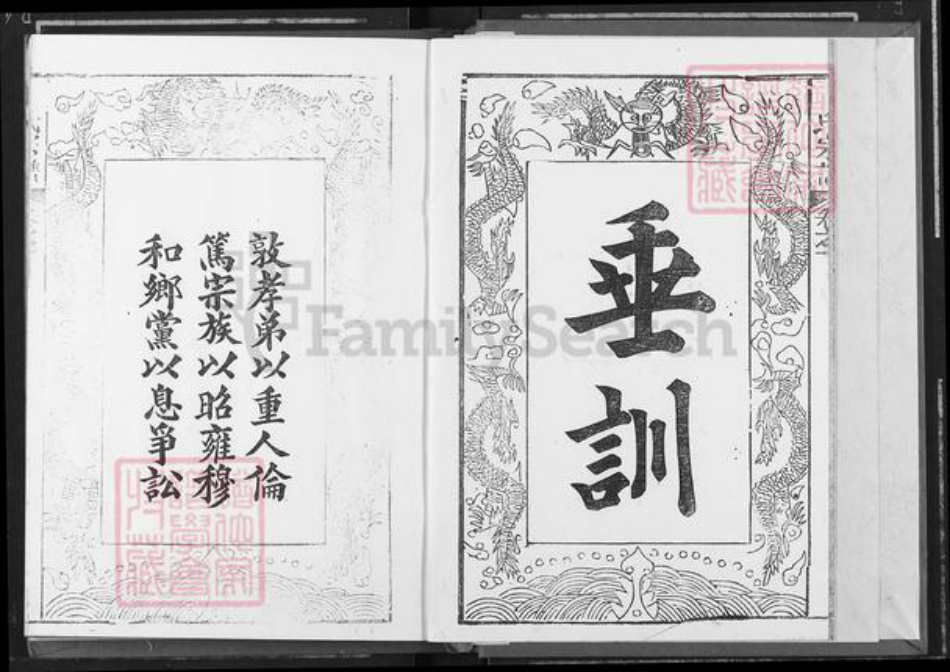 垂訓
敦孝弟以重人倫
篤宗族以昭雍穆
和鄉黨以息爭訟
FamilySearch